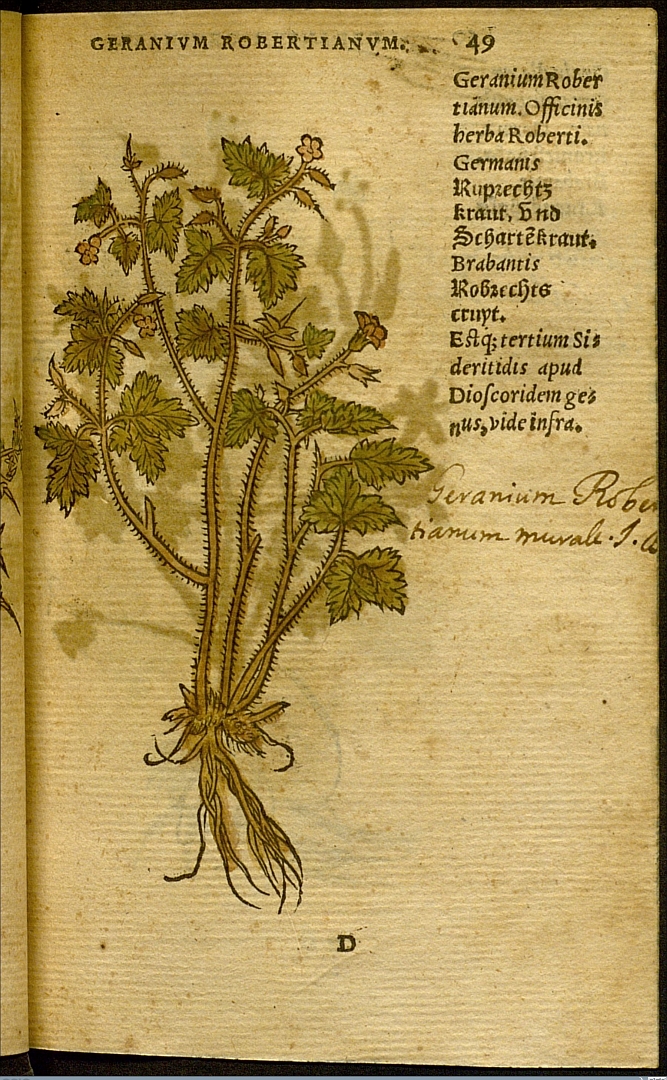 GERANIVM ROBERTIANVM. 49
Geranium Rober
tianum. Officinis
herba Roberti.
Germanis
Ruprechtz
kraut, vnd
Schartēkraut.
Brabantis
Robrechts
cruyt.
Estq; tertium Si-
deritidis apud
Dioscoridem ge-
nus, vide infra.
Geranium Robe
tianum murale. I.
D